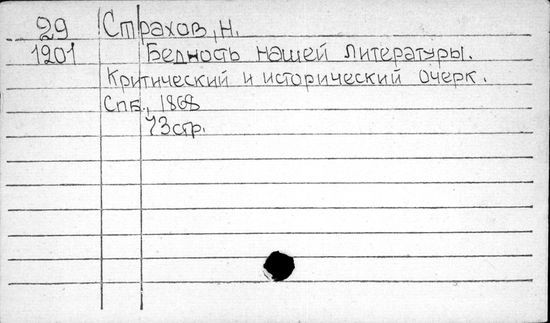 29 Страхов, Н.
1201 Бедность нашей литературы.
Критический и исторический очерк.
Спб., 1868
73 стр.